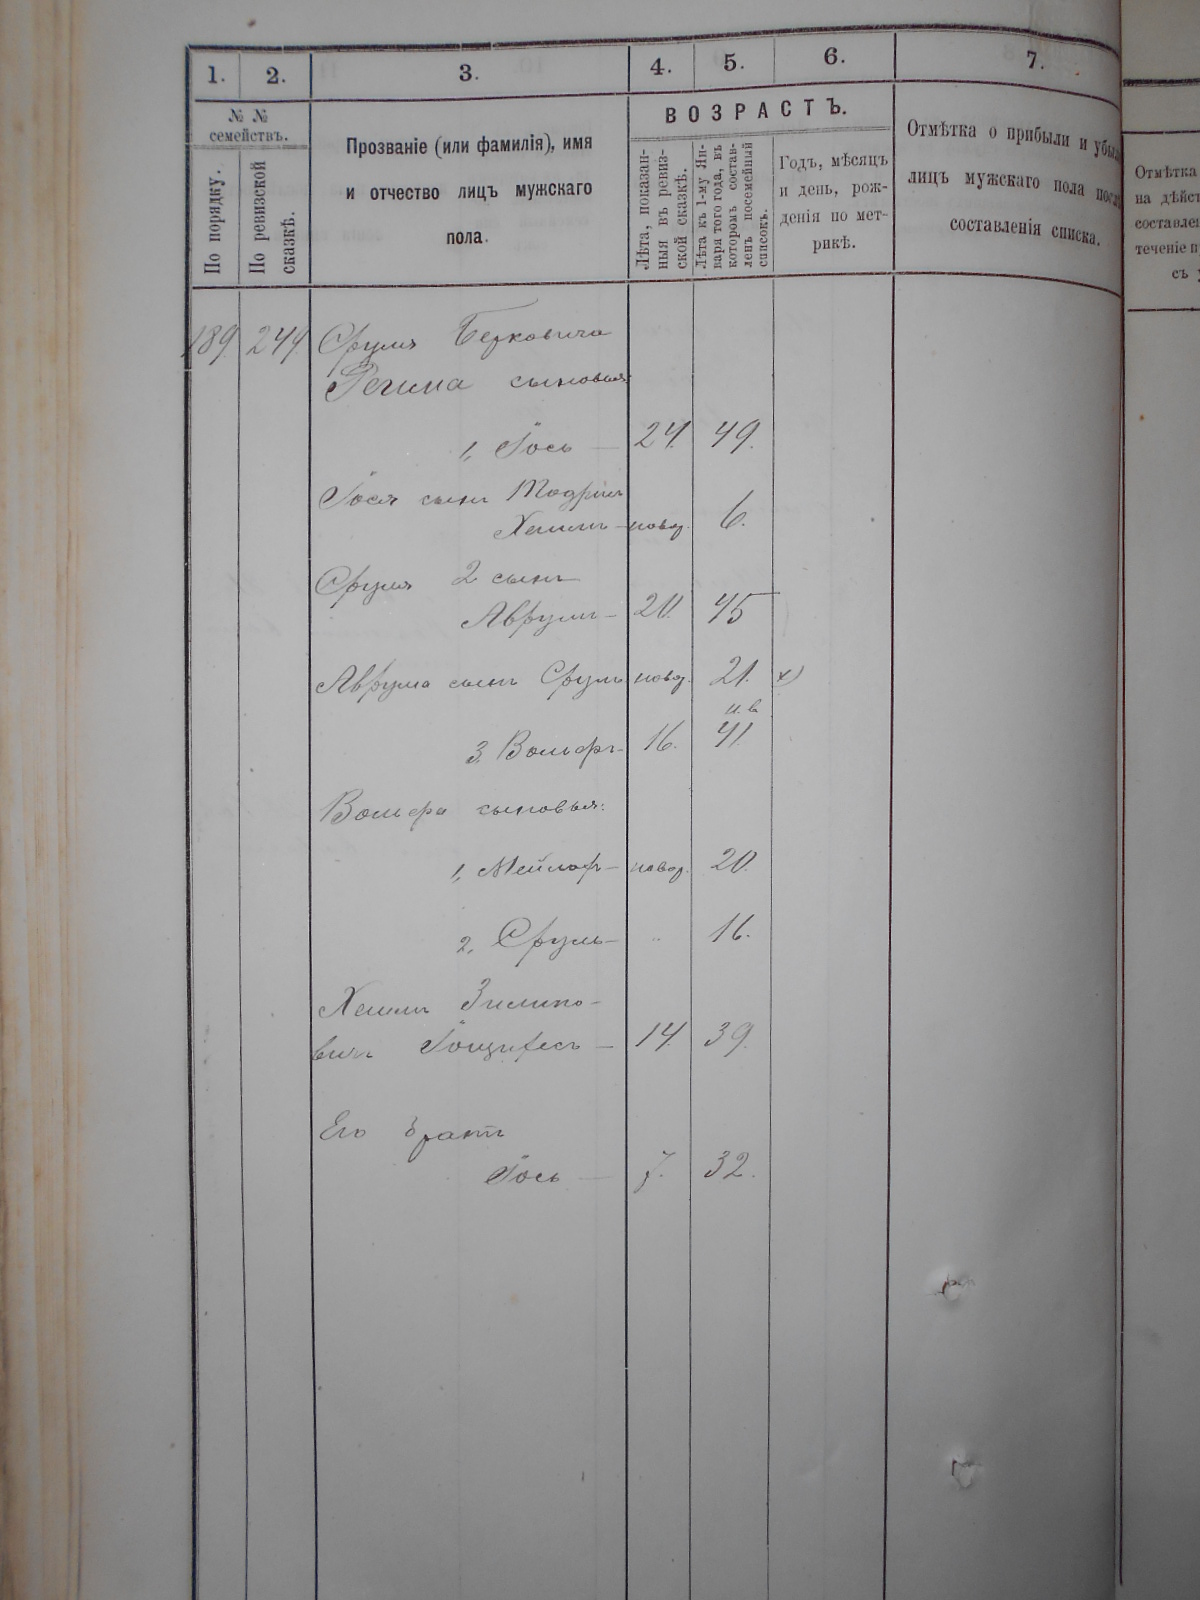 1. 2. 3. 4. 5. 6. 7.
№ № семействъ.
По порядку.
По ревизской сказкѣ.
Прозваніе (или фамилія), имя
и отчество лицъ мужскаго
пола.
ВОЗРАСТЪ.
Лѣта, показан-
ныя въ ревиз-
ской сказкѣ.
Лѣта къ 1-му Ян-
варя того года, въ
которомъ состав-
ленъ посемейный
списокъ.
Годъ, мѣсяцъ
и день, рож-
денія по мет-
рикѣ.
Отмѣтка о прибыли и убы
лицъ мужскаго пола посл
составленія списка.
Отмѣтка
на дѣйст
составлен
теченіе п
съ
189. 244. Сруля Берковича
сыновья:
1, Іось — 24. 49.
Іося сынъ
Хаимъ — новор. 6.
Сруля 2 сынъ
Аврумъ — 20. 45
Аврума сынъ Сруль новор. 21. х)
и. в.
3. Вольфъ — 16. 41.
Вольфа сыновья:
1, Мейлах — новор. 20.
2, Сруль — " 16.
Хаимъ
вичъ — 14. 39.
Его братъ
Іось — 7. 32.